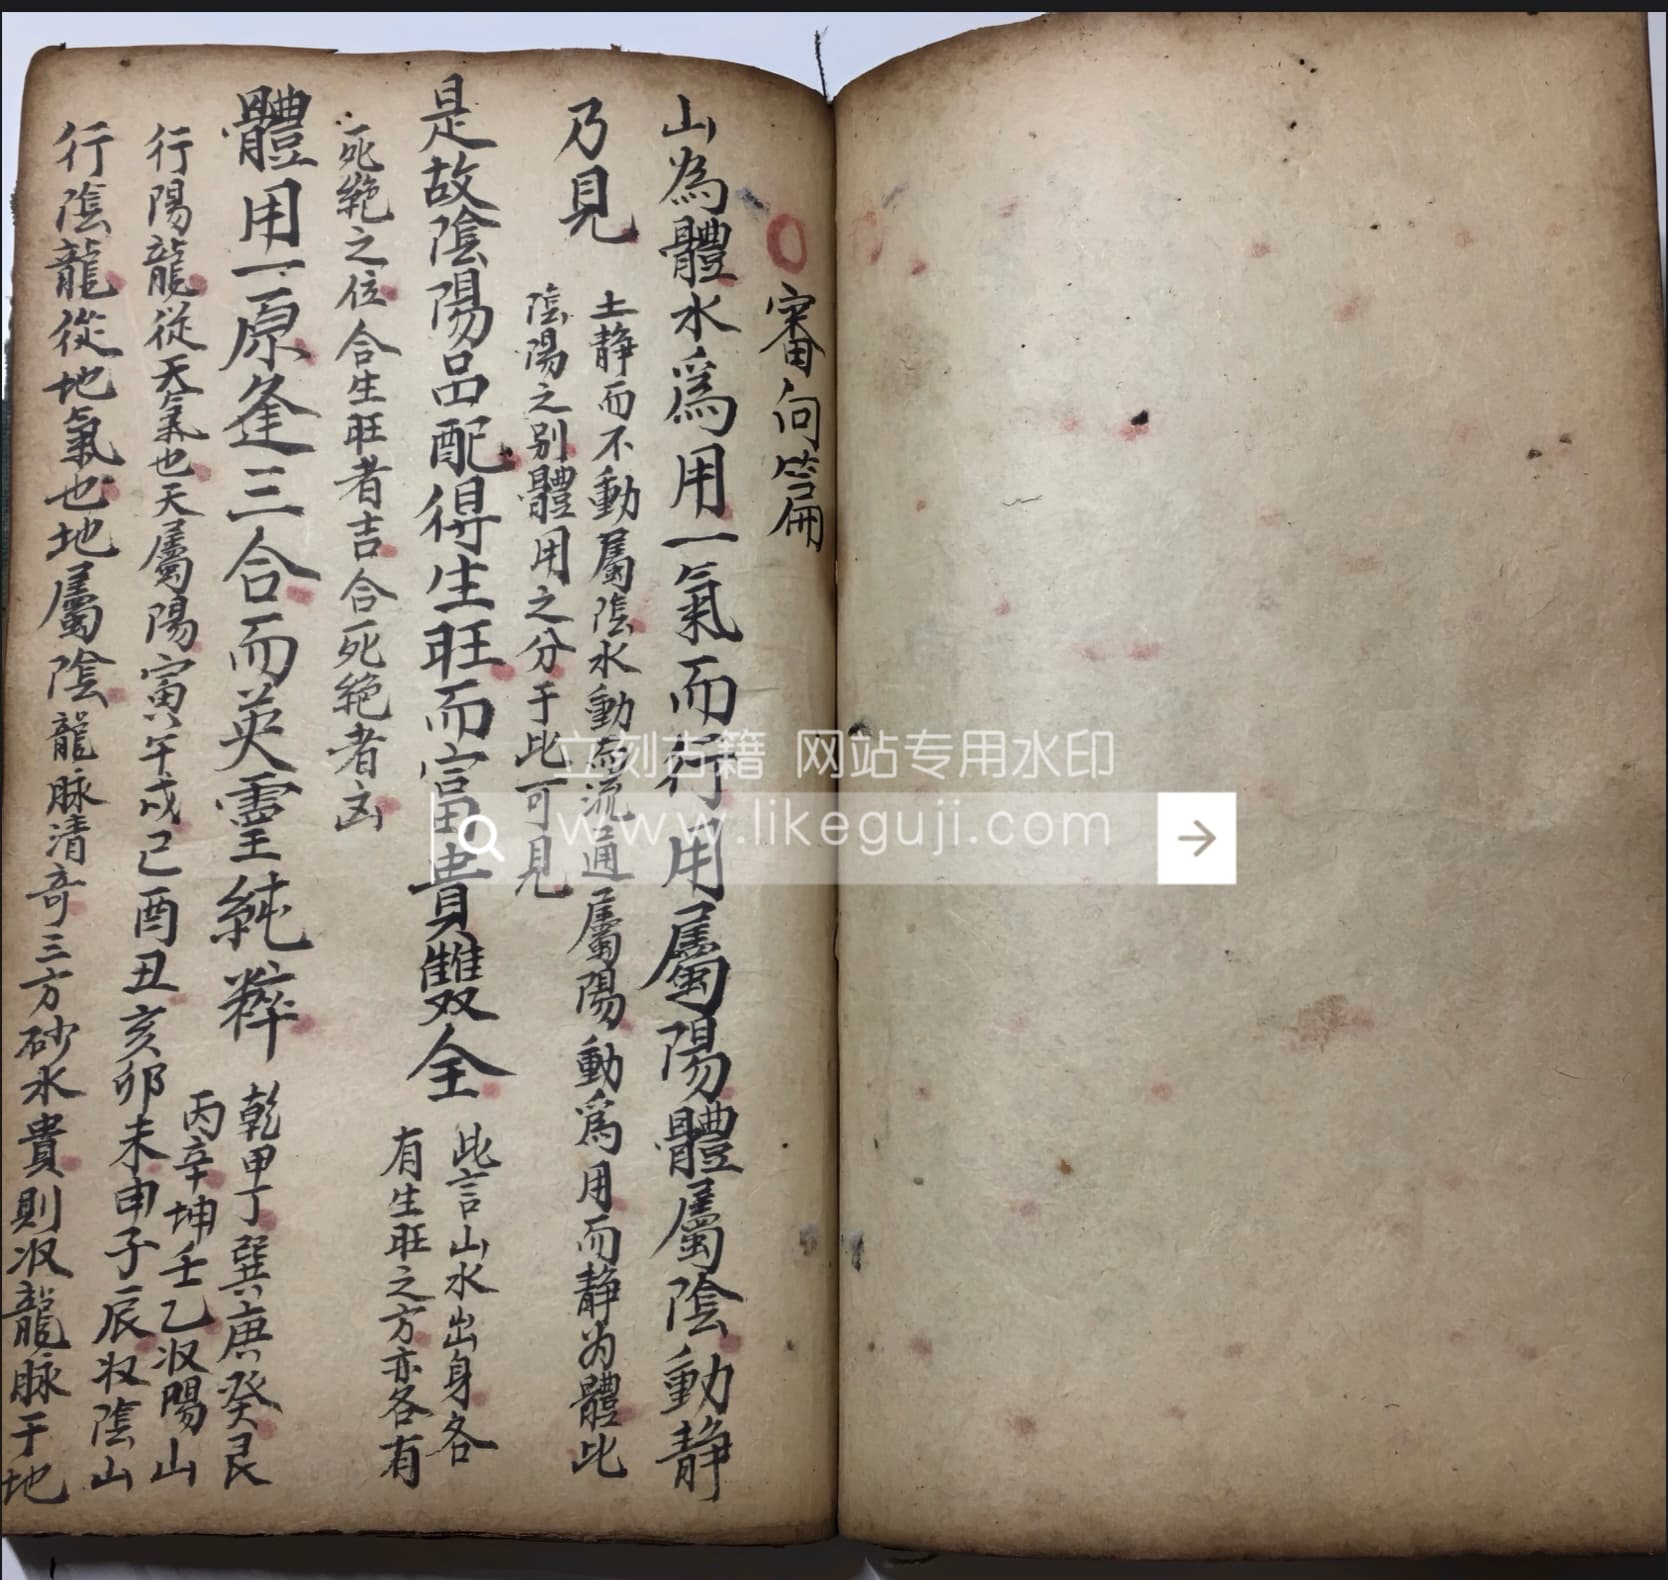 審向篇
山為體水爲用一氣而行用屬陽體屬陰動靜
乃見
土静而不動屬陰水動而流通屬陽動爲用而静为體此
陰陽之别體用之分于此可見
是故陰陽品配得生旺而富貴雙全
此言山水出身各
有生旺之方亦各有
死絶之位合生旺者吉合死絶者凶
體用一原逢三合而英靈純粹
乾甲丁巽庚癸艮
丙辛坤壬乙収陽山
行陽龍従天氣也天屬陽寅午戌巳酉丑亥卯未申子辰収陰山
行陰龍從地氣也地屬陰龍脉清奇三方砂水貴則収龍脉于地
立刻古籍 网站专用水印
www.likeguji.com